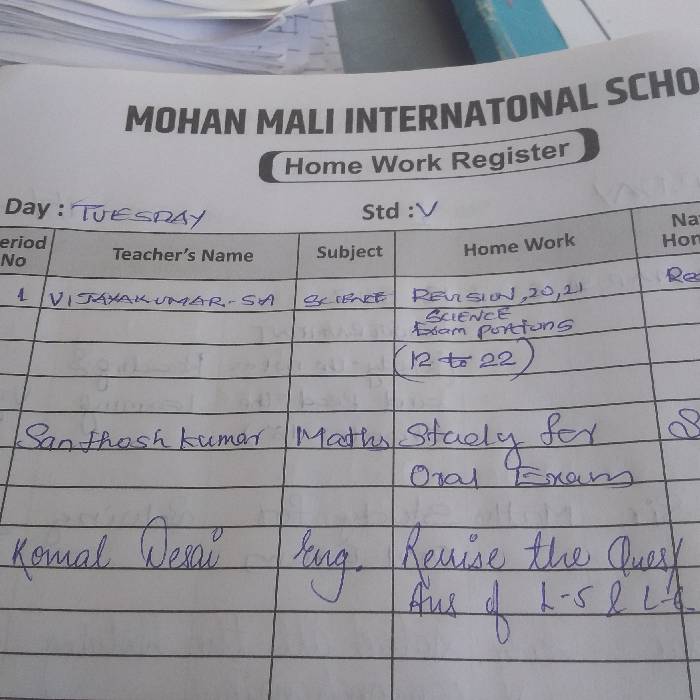 MOHAN MALI INTERNATONAL SCHO
Home Work Register
Day : TUESDAY Std : V
eriod No Teacher's Name Subject Home Work Na Hon
1 VIJAYAKUMAR-SA SCIENCE REVISION, 20, 21 Rea
SCIENCE
Exam portions
(12 to 22)
Santhosh kumar Maths Study for S
Oral Exam
Komal Desai Eng. Revise the Ques
Ans of L-5 & L-6